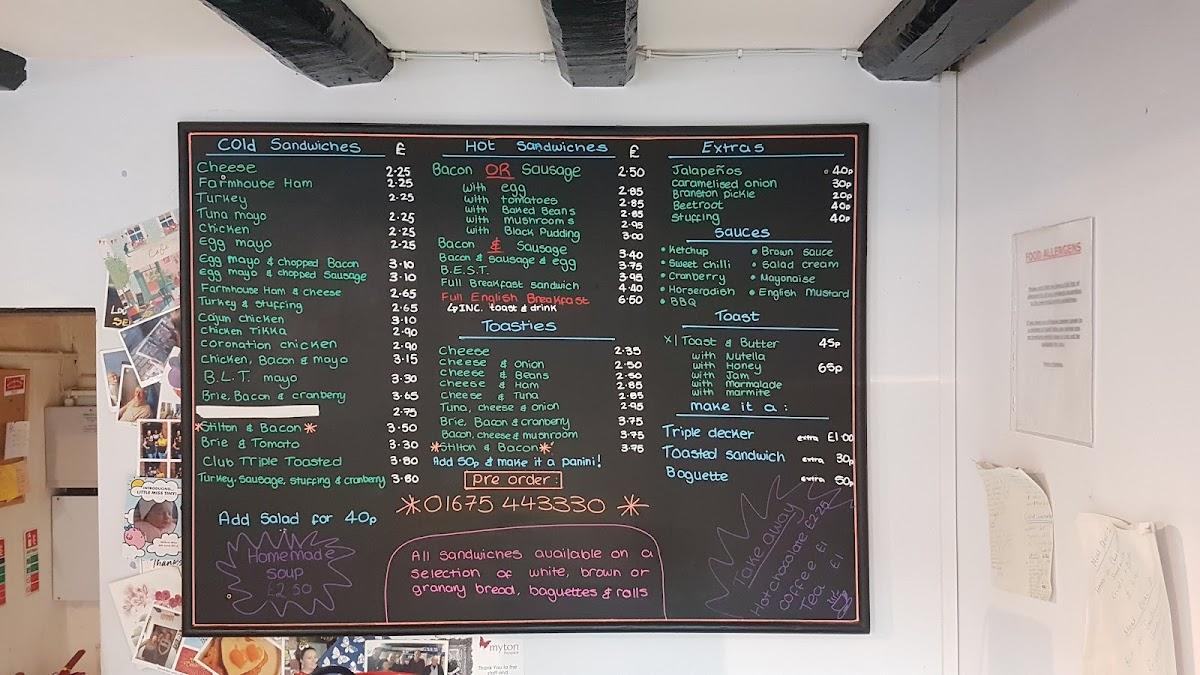 Cold Sandwiches £
Cheese 2.25
Farmhouse Ham 2.25
Turkey 2.25
Tuna mayo 2.25
Chicken 2.25
Egg mayo 2.25
Egg mayo & Chopped Bacon 3.10
egg mayo & chopped Sausage 3.10
Farmhouse Ham & cheese 2.65
Turkey & stuffing 2.65
Cajun chicken 3.10
Chicken Tikka 2.90
Coronation chicken 2.90
Chicken, Bacon & mayo 3.15
B.L.T. mayo 3.30
Brie, Bacon & cranberry 3.65
2.75
*Stilton & Bacon* 3.50
Brie & Tomato 3.30
Club Triple Toasted 3.80
Turkey, sausage, stuffing & cranberry 3.60
Add Salad for 40p
Homemade
soup
£2.50
Hot Sandwiches £
Bacon OR Sausage 2.50
with egg 2.85
with tomatoes 2.85
with Baked Beans 2.85
with mushrooms 2.95
with Black Pudding 3.00
Bacon & Sausage 3.40
Bacon & sausage & egg 3.75
B.E.S.T. 3.95
Full Breakfast sandwich 4.40
Full English Breakfast 6.50
↳INC. toast & drink
Toasties
Cheese 2.35
Cheese & onion 2.50
Cheese & Beans 2.50
cheese & Ham 2.85
Cheese & Tuna 2.85
Tuna, cheese & onion 2.95
Brie, Bacon & cranberry 3.75
Bacon, cheese & mushroom 3.75
*Stilton & Bacon* 3.75
Add 50p & make it a panini!
Pre order:
*01675 443330*
All sandwiches available on a
selection of white, brown or
granary bread, baguettes & rolls
Extras
Jalapeños 40p
caramelised onion 30p
Branston pickle 20p
Beetroot 40p
stuffing 40p
Sauces
• Ketchup • Brown sauce
• Sweet chilli • Salad cream
• Cranberry • Mayonaise
• Horseradish • English Mustard
• BBQ
Toast
x1 Toast & Butter 45p
with Nutella
with Honey 65p
with Jam
with marmalade
with marmite
make it a:
Triple decker extra £1.00
Toasted sandwich extra 30p
Baguette extra 50p
Take away
Hot chocolate £2.25
Coffee £1
Tea £1
FOOD ALLERGENS
INTRODUCING...
LITTLE MISS TINY!
Thank
myton
Thank You to the
staff and